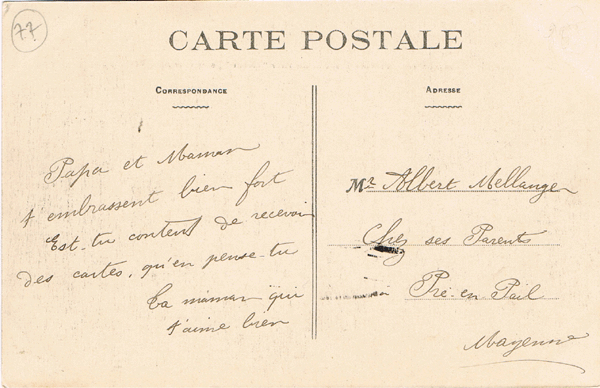 77
CARTE POSTALE
CORRESPONDANCE
Papa et Maman
t'embrassent bien fort
Est-tu content de recevoir
des cartes, qu'en pense-tu
Ta maman qui
t'aime bien
ADRESSE
Mr Albert Mellanger
Chez ses Parents
Pré-en-Pail
Mayenne